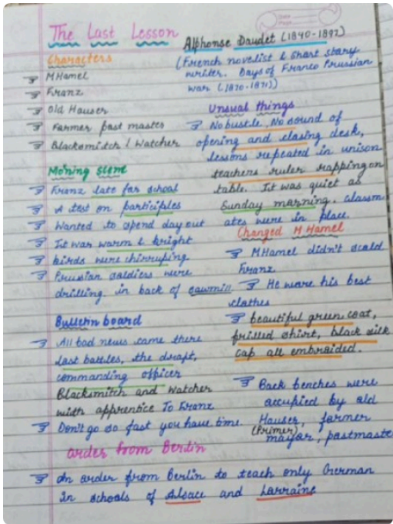 The Last Lesson
Characters
M Hamel
Franz
Old Hauser
Farmer post master
Blacksmith & Watcher
Morning Scene
Franz late for school
A test on participles
Wanted to spend day out
It was warm & bright
birds were chirruping
Prussian soldiers were
drilling in back of sawmill
Bulletin board
All bad news came there
last battles, the draft,
commanding officer
Blacksmith and Watcher
with apprentice To Franz
Don't go so fast you have time.
Alphonse Daudet (1840-1897)
(French novelist & short story
writer. Days of Franco Prussian
war (1870-1871))
Unsual things
No bustle, No sound of
opening and closing desk,
lessons repeated in unison
teachers ruler rapping on
table. It was quiet as
Sunday morning, classm
ates were in place
Changed M Hamel
M Hamel didn't scold
Franz
He wore his best
clothes
beautiful green coat,
frilled shirt, black silk
cap all embroided.
Back benches were
occupied by old
Hauser, former
(Primer)
mayor, postmaste
order from Berlin
An order from Berlin to teach only German
in schools of Alsace and Lorraine